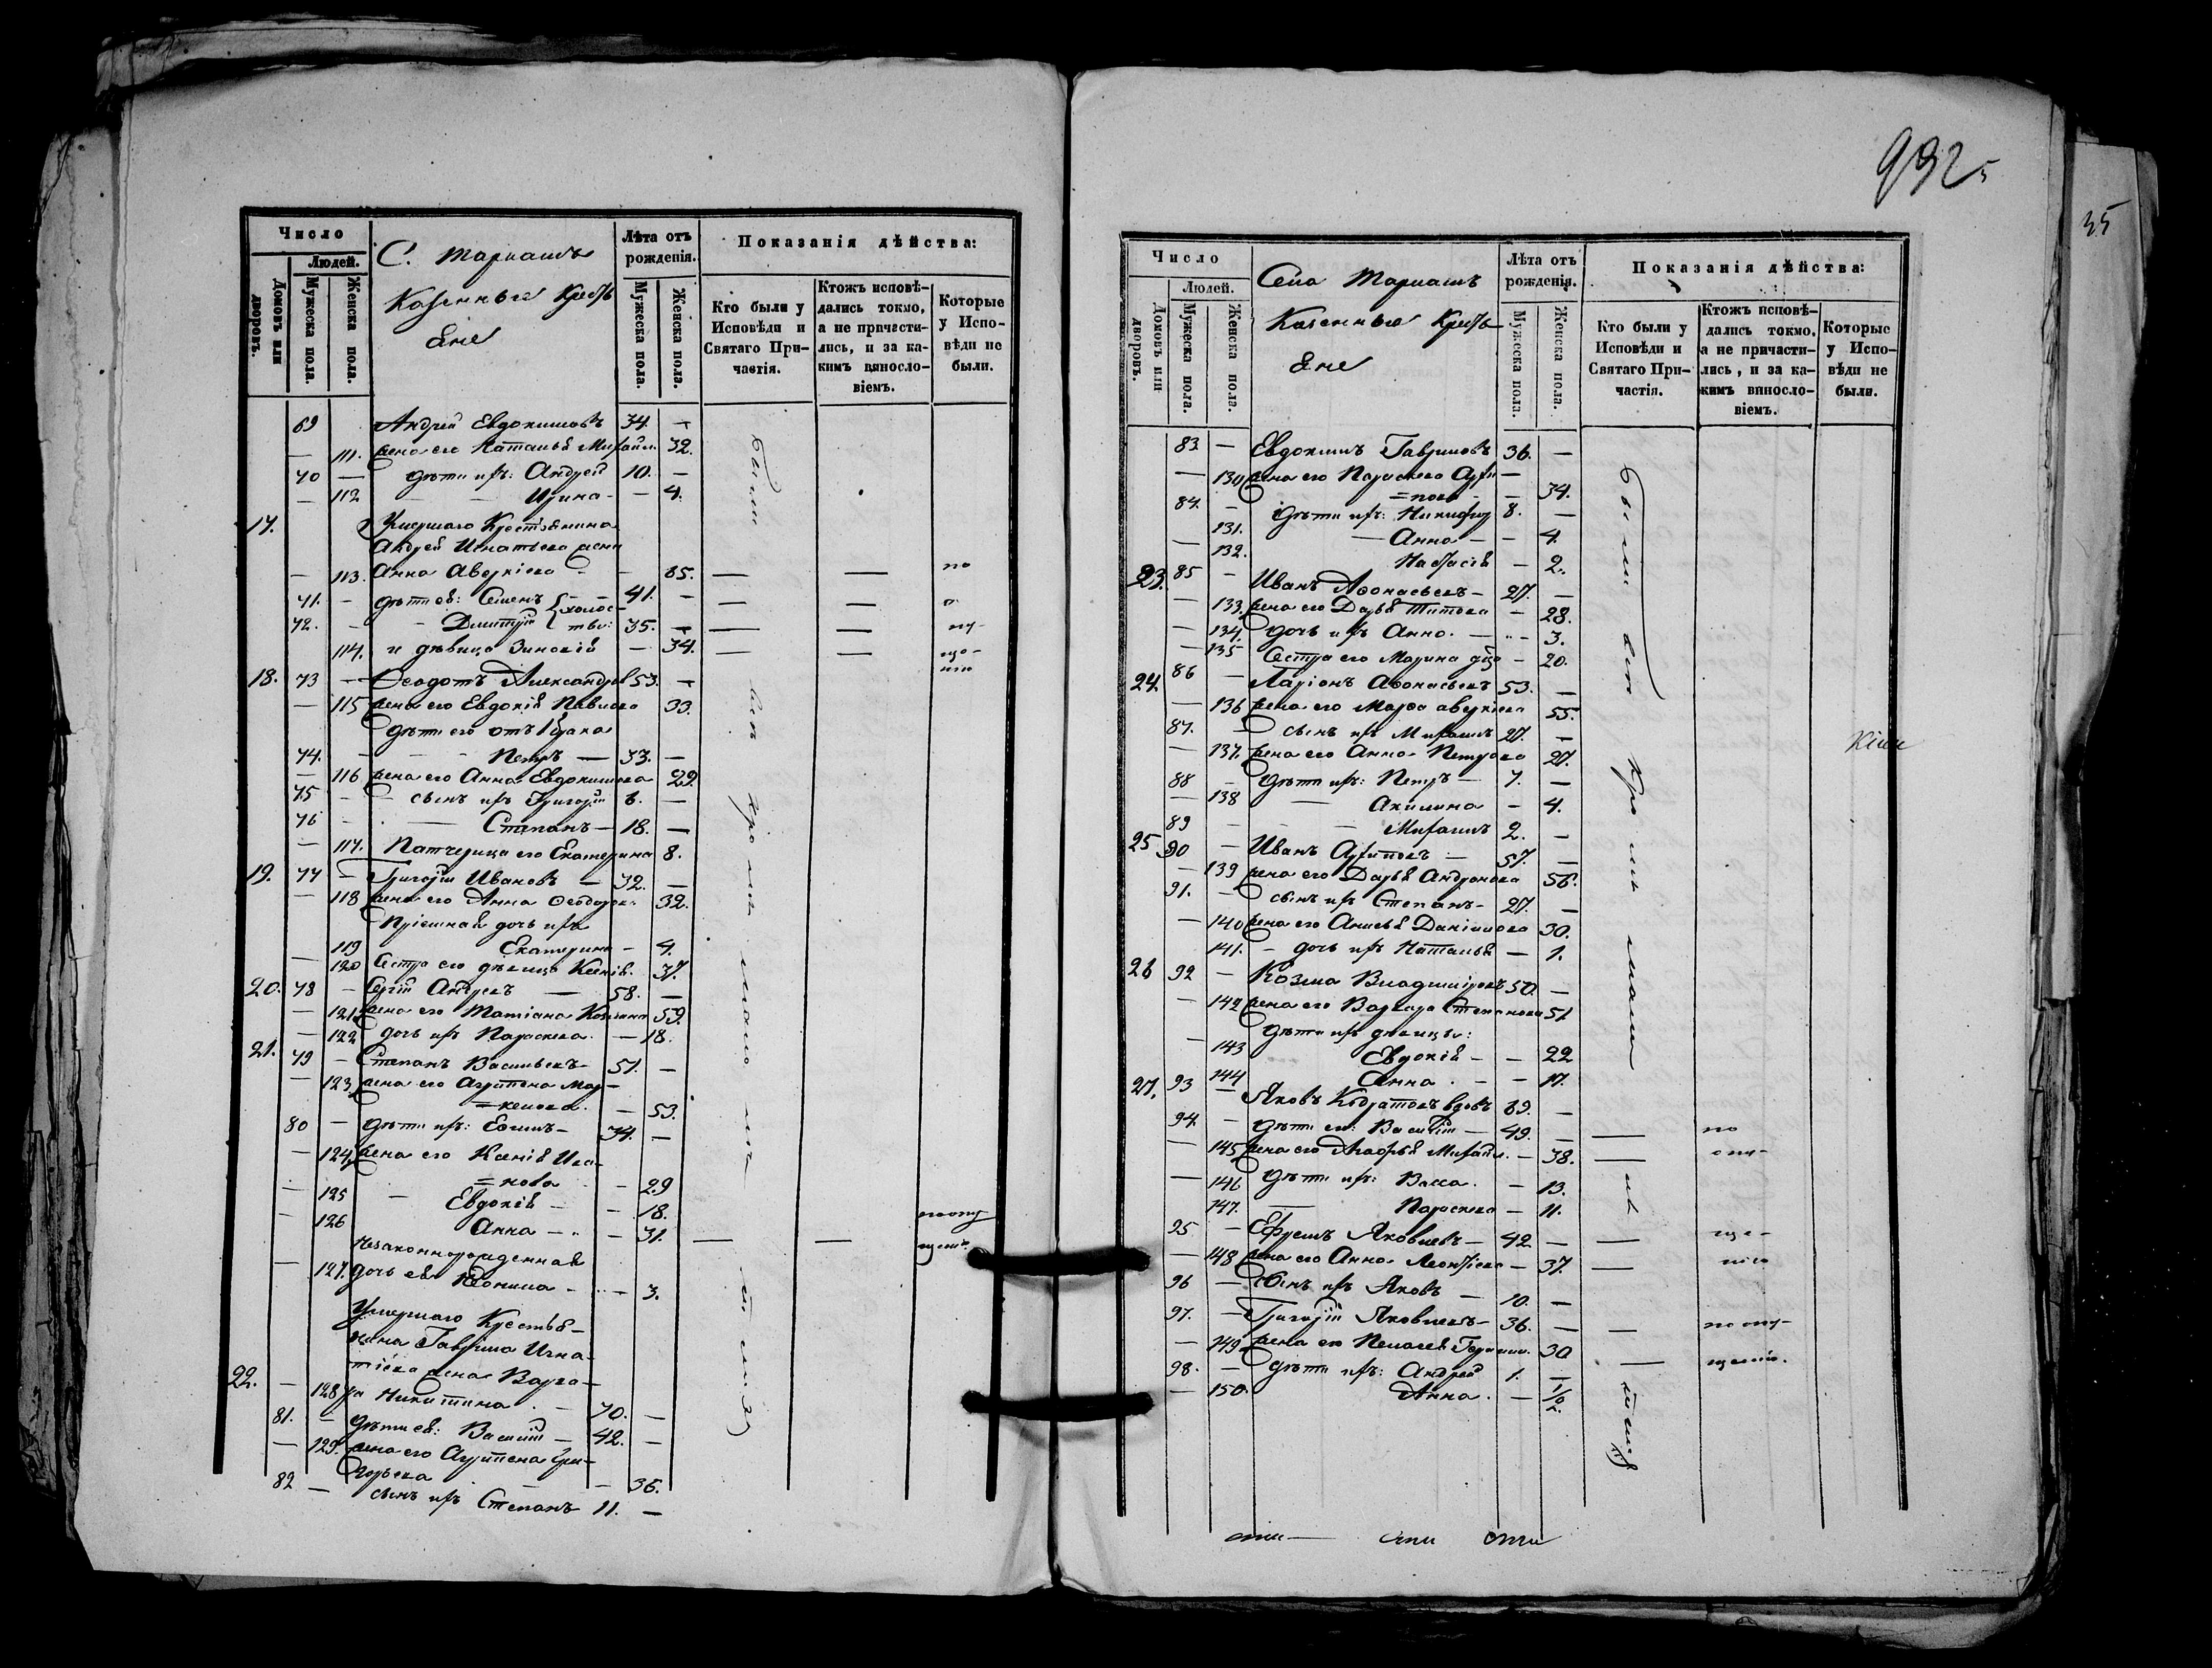 Число
Людей.
Домовъ или дворовъ.
Мужеска пола.
Женска пола.
С. Тарнашъ
Казенные Кресть
яне
Лѣта отъ рожденія.
Мужеска пола.
Женска пола.
Показанія дѣйства:
Кто были у Исповѣди и Святаго При-частія.
Ктожъ исповѣ-дались токмо, а не причасти-лись, и за ка-кимъ винosло-віемъ.
Которые у Испо-вѣди не были.
69 Андрей Евдокимовъ 34. —
— 111. жена его Наталья Михайл. 32.
70 — дѣти ихъ: Андрей 10. —
— 112 Ирина — — 4.
17. Умершаго Крестьянина
Андрея Игнатьева жена
— 113. Анна Аверкіева — — 65. — — по
71. — дѣти ея: Семенъ холос- 41. — — —
72. — — Дмитрій тые: 35. — — — пу-
114. и дѣвица Зиновія — 34. — — ще-
нію
18. 73 — Ѳеодотъ Александровъ 53. —
— 115 жена его Евдокія Павлова 33.
дѣти его отъ 1 брака
74. — — Петръ — 33. —
— 116 жена его Анна Евдокимова 29.
75 — — сынъ ихъ Григорій 6. —
76 — — Степанъ — 18. —
— 117. Патчерица его Екатерина 8.
19. 77 — Григорій Ивановъ — 32. —
— 118 жена его Анна Ѳеодоров. 32.
Пріемная дочь ихъ
119 Екатерина — 4.
— 120 Сестра его дѣвица Ксенія. 37.
20. 78 — Сергій Андреевъ — 58. —
— 121. жена его Татіана Козмина 59.
— 122 дочь ихъ Параскева. — 18.
21. 79 — Степанъ Васильевъ 51. —
— 123 жена его Агрипена Мар-
=келова. — 53.
80 — дѣти ихъ: Ефимъ — 34. —
— 124. жена его Ксенія Ива-
=нова — 29
— 125 — Евдокія — — 18.
— 126 Анна — — 31. — — по опу
щенію
незаконнорожденная
— 127. дочь ея — — 3.
Умершаго Крестья-
нина Гавріила Игна-
тіева жена Варва-
22. — 128 ра Никитина. — 70. —
81. — дѣти ея: Василій — 42. —
— 129. жена его Агрипена Гри-
горьева — — 36.
82 — сынъ ихъ Степанъ 11. —
932
35
Число
Людей.
Домовъ или дворовъ.
Мужеска пола.
Женска пола.
Села Тарнашъ
Казенные Кресть
яне
Лѣта отъ рожденія.
Мужеска пола.
Женска пола.
Показанія дѣйства:
Кто были у Исповѣди и Святаго При-частія.
Ктожъ исповѣ-дались токмо, а не причасти-лись, и за ка-кимъ винosло-віемъ.
Которые у Испо-вѣди не были.
83 — Евдокимъ Гавриловъ 36. —
— 130 жена его Параскева Архи —
=пова — — 34.
84. — дѣти ихъ: Никифор 8. —
131. — Анна — — 4.
— 132. Настасія — 2.
23. 85 — Иванъ Аѳонасьевъ — 27. —
— 133. жена его Дарья Титова — 28.
— 134. дочь ихъ Анна. — — 3.
— 135 Сестра его Марина — 20.
24. 86 — Ларіонъ Аѳонасьевъ 53. —
— 136 жена его Марѳа Аверкіева 55.
87. — сынъ ихъ Михаилъ 27. —
— 137. жена его Анна Петрова 27.
88 — дѣти ихъ: Петръ — 7. —
— 138 — Акилина — 4.
89 — — Михаилъ 2. —
25. 90 — Иванъ Архиповъ — 57. —
— 139 жена его Дарья Андронова 56.
91. — сынъ ихъ Степанъ — 27. —
— 140 жена его Анисья Даніилова 30.
141. — дочь ихъ Наталья — 1.
26 92 — Козма Владиміровъ 50. —
— 142 жена его Варвара Степанова 51
дѣти ихъ дѣвицы:
— 143 Евдокія — — 22
144 Анна. — — 17.
27. 93 — Яковъ Кодратовъ вдовъ 69. —
94. — дѣти его: Василій — 49. — — по
— 145 жена его Агафья Михайл. — 38. — опу-
— 146 дѣти ихъ: Васса. — 13.
147. — Параскева — 11.
95 — Ефремъ Яковлевъ — 42 — — ще-
— 148 жена его Анна Леонтіева — 37. — нію
96 — Сынъ ихъ Яковъ — 10. —
97. — Григорій Яковлевъ — 36. — — по опу-
— 149 жена его Пелагея Герасим. 30 — щенію.
98. — дѣти ихъ: Андрей 1. —
— 150. Анна. — 1/2